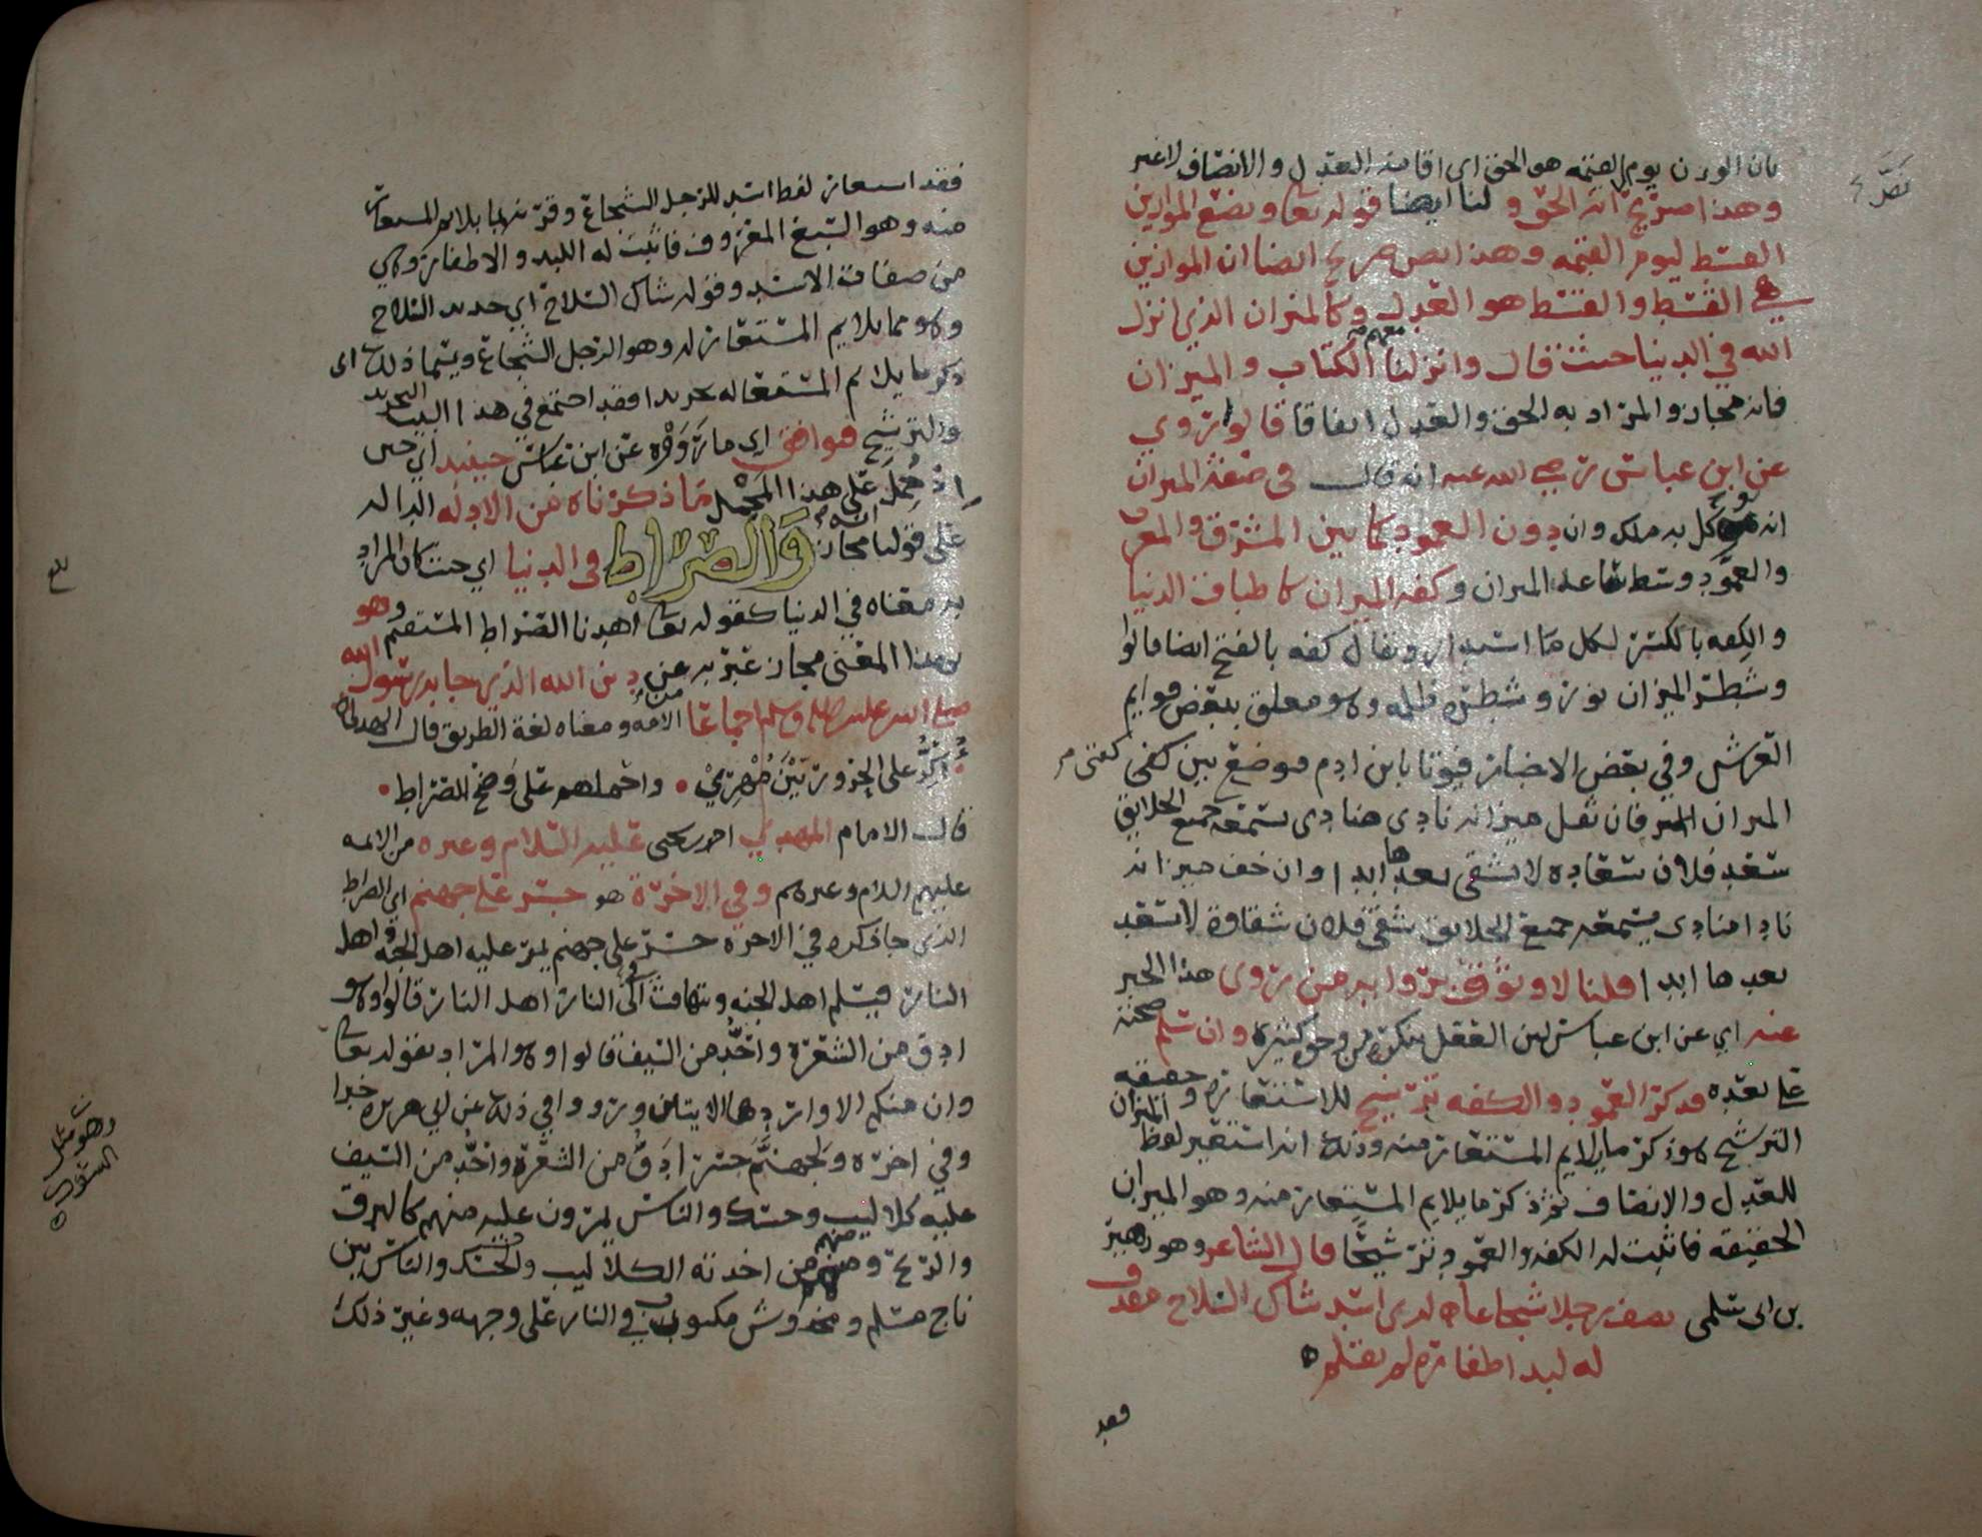 بان الوزن يوم القيمه هو الحق اي اقامة العدل والانصاف لا غير
وهذا صريح انه الحق و لنا ايضا قوله تعا ونضع الموازين
القسط ليوم القيمه وهذا نص صريح ايضا ان الموازين
هي القسط والقسط هو العدل وكالميزان الذي انزل
الله في الدنيا حيث قال وانزلنا معهم الكتاب والميزان
فانه مجاز والمراد به الحق والعدل اتفاقا قالوا روي
عن ابن عباس رضي الله عنه انه قال في صفة الميزان
انه موكل به ملك وان دون العمود كما بين المشرق والمغرب
والعمود وسط الميران وكفه الميزان كاطباق الدنيا
والكفه بالكسر لكل ما استدار ويقال كفه بالفتح ايضا قالوا
وشطر الميزان نور وشطره ظلمه وهو معلق ببعض قوايم
العرش وفي بعض الاخبار فيوتا بابن ادم فيوضع بين كفتي
الميزان فان ثقل ميزانه نادى منادي يسمعه جميع الخلايق
سعد فلان سعاده لا يشقى بعدها ابدا وان خف ميزانه
نادا منادي يسمعه جميع الخلايق شقي فلان شقاوة لا يسعد
بعدها ابدا قلنا لا وثوق برواية من روى هذا الخبر
عنه اي عن ابن عباس لان العقل ينكره من وجوه كثيره وان سلم صحته
على بعده فذكر العمود والكفه ترشيح للاستعاره و حقيقه
الترشيح هو ذكر ما يلايم المستعار منه وذلك انه استعير لفظ الميزان
للعدل والانصاف ثم ذكر ما يلايم المستعار منه وهو الميزان
الحقيقه فاثبت له الكفه والعمود ترشيحا قال الشاعر وهو زهير
بن ابي سلمى يصف رجلا شجاعا لدى اسد شاك السلاح مقذف
له لبد اظفاره لم تقلم
فقد
فقد استعار لفظ اسد للرجل الشجاع وقرنه بما يلايم المستعار
منه وهو السبع المعروف فاثبت له اللبد والاظفار وهي
من صفات الاسد وقوله شاك السلاح اي حديد السلاح
وهو مما يلايم المستعار له وهو الرجل الشجاع ويسما ذلك اي
ذكر ما يلايم المستعار له تجريدا فقد اجتمع في هذا البيت التجريد
والترشيح فوافق اي ما روى عن ابن عباس حينئذ اي حين
اذ حمل على هذا المحمل ما ذكرناه من الادله الداله
على قولنا انه مجاز والصراط في الدنيا اي حيث كان المراد
به معناه في الدنيا كقوله تعا اهدنا الصراط المستقيم وهو
بهذا المعنى مجاز عبر به عن دين الله الذي جا به رسول الله
صلى الله عليه وسلم اجماعا من الامه ومعناه لغة الطريق قال
على وضح الصراط
قال الامام المهدي احمد بن يحيى عليه السلام وغيره من الائمه
عليهم السلام وغيرهم وفي الاخرة هو جسر على جهنم اي الصراط
الذي جا ذكره في الاخره جسر على جهنم يمر عليه اهل الجنه واهل
النار فيسلم اهل الجنه ويتهافت في النار اهل النار قالوا وهو
ادق من الشعرة واحد من السيف قالوا وهو المراد بقوله تعا
وان منكم الا واردها الايتان ورووا في ذلك عن ابي هريره خبرا
وفي اخره ولجهنم جسر ادق من الشعرة واحد من السيف
عليه كلاليب وحسك والناس يمرون عليه منهم كالبرق
والريح ومنهم من اخذته الكلاليب والحسك والناس بين
ناج مسلم ومخدوش مكبوب في النار على وجهه وغير ذلك